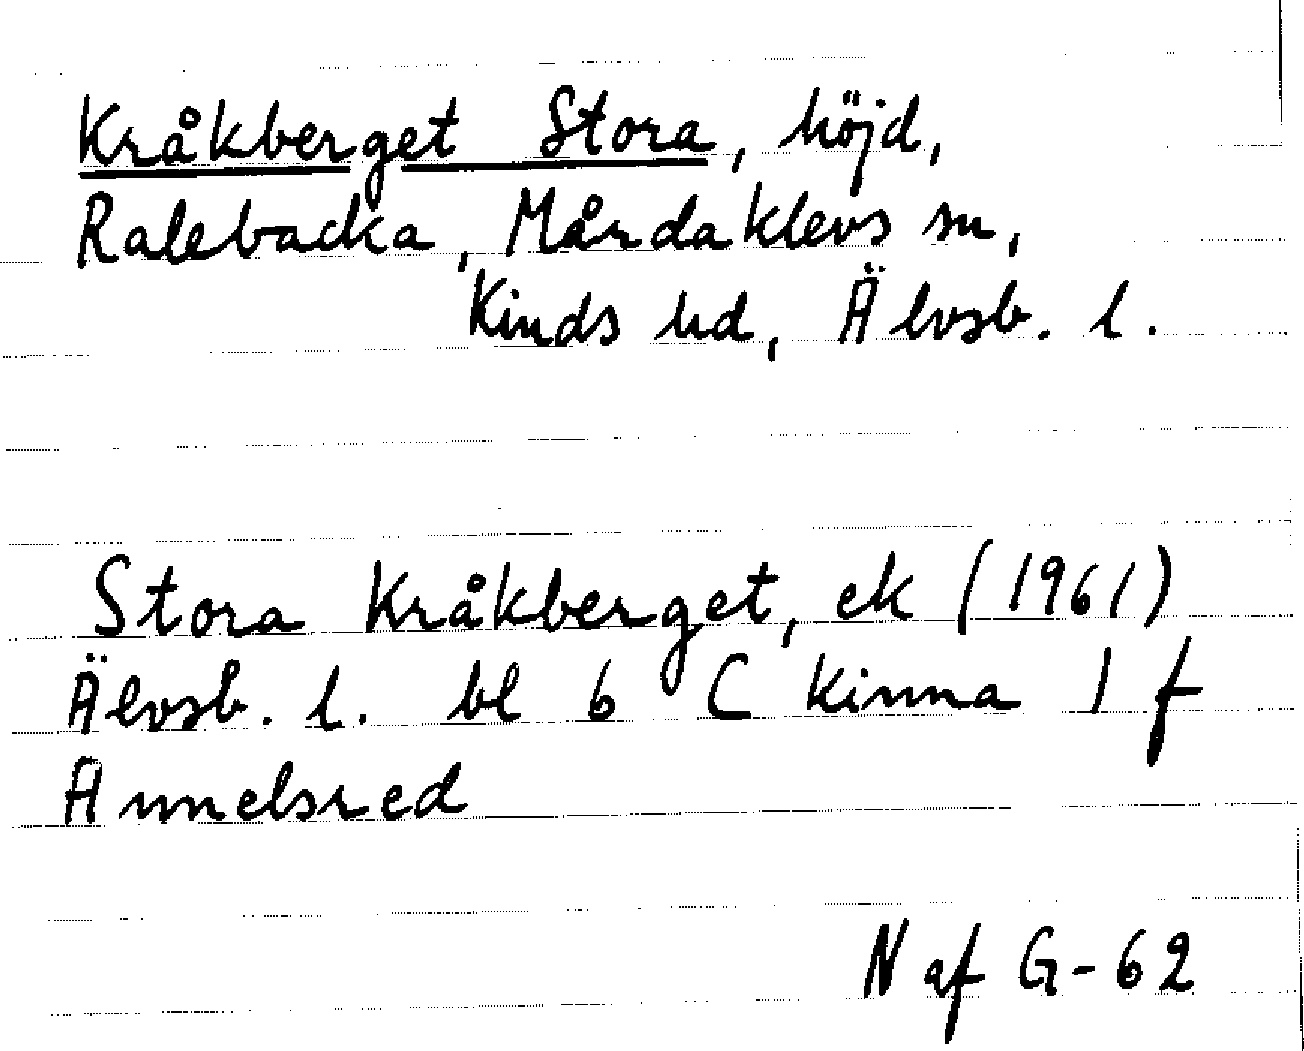 Kråkberget Stora, höjd,
Ralebacka, Mårdaklevs sn,
Kinds hd, Älvsb. l.
Stora Kråkberget, ek (1961)
Älvsb. l. bl 6 C Kinna 1 f
Annelsred
N af G-62